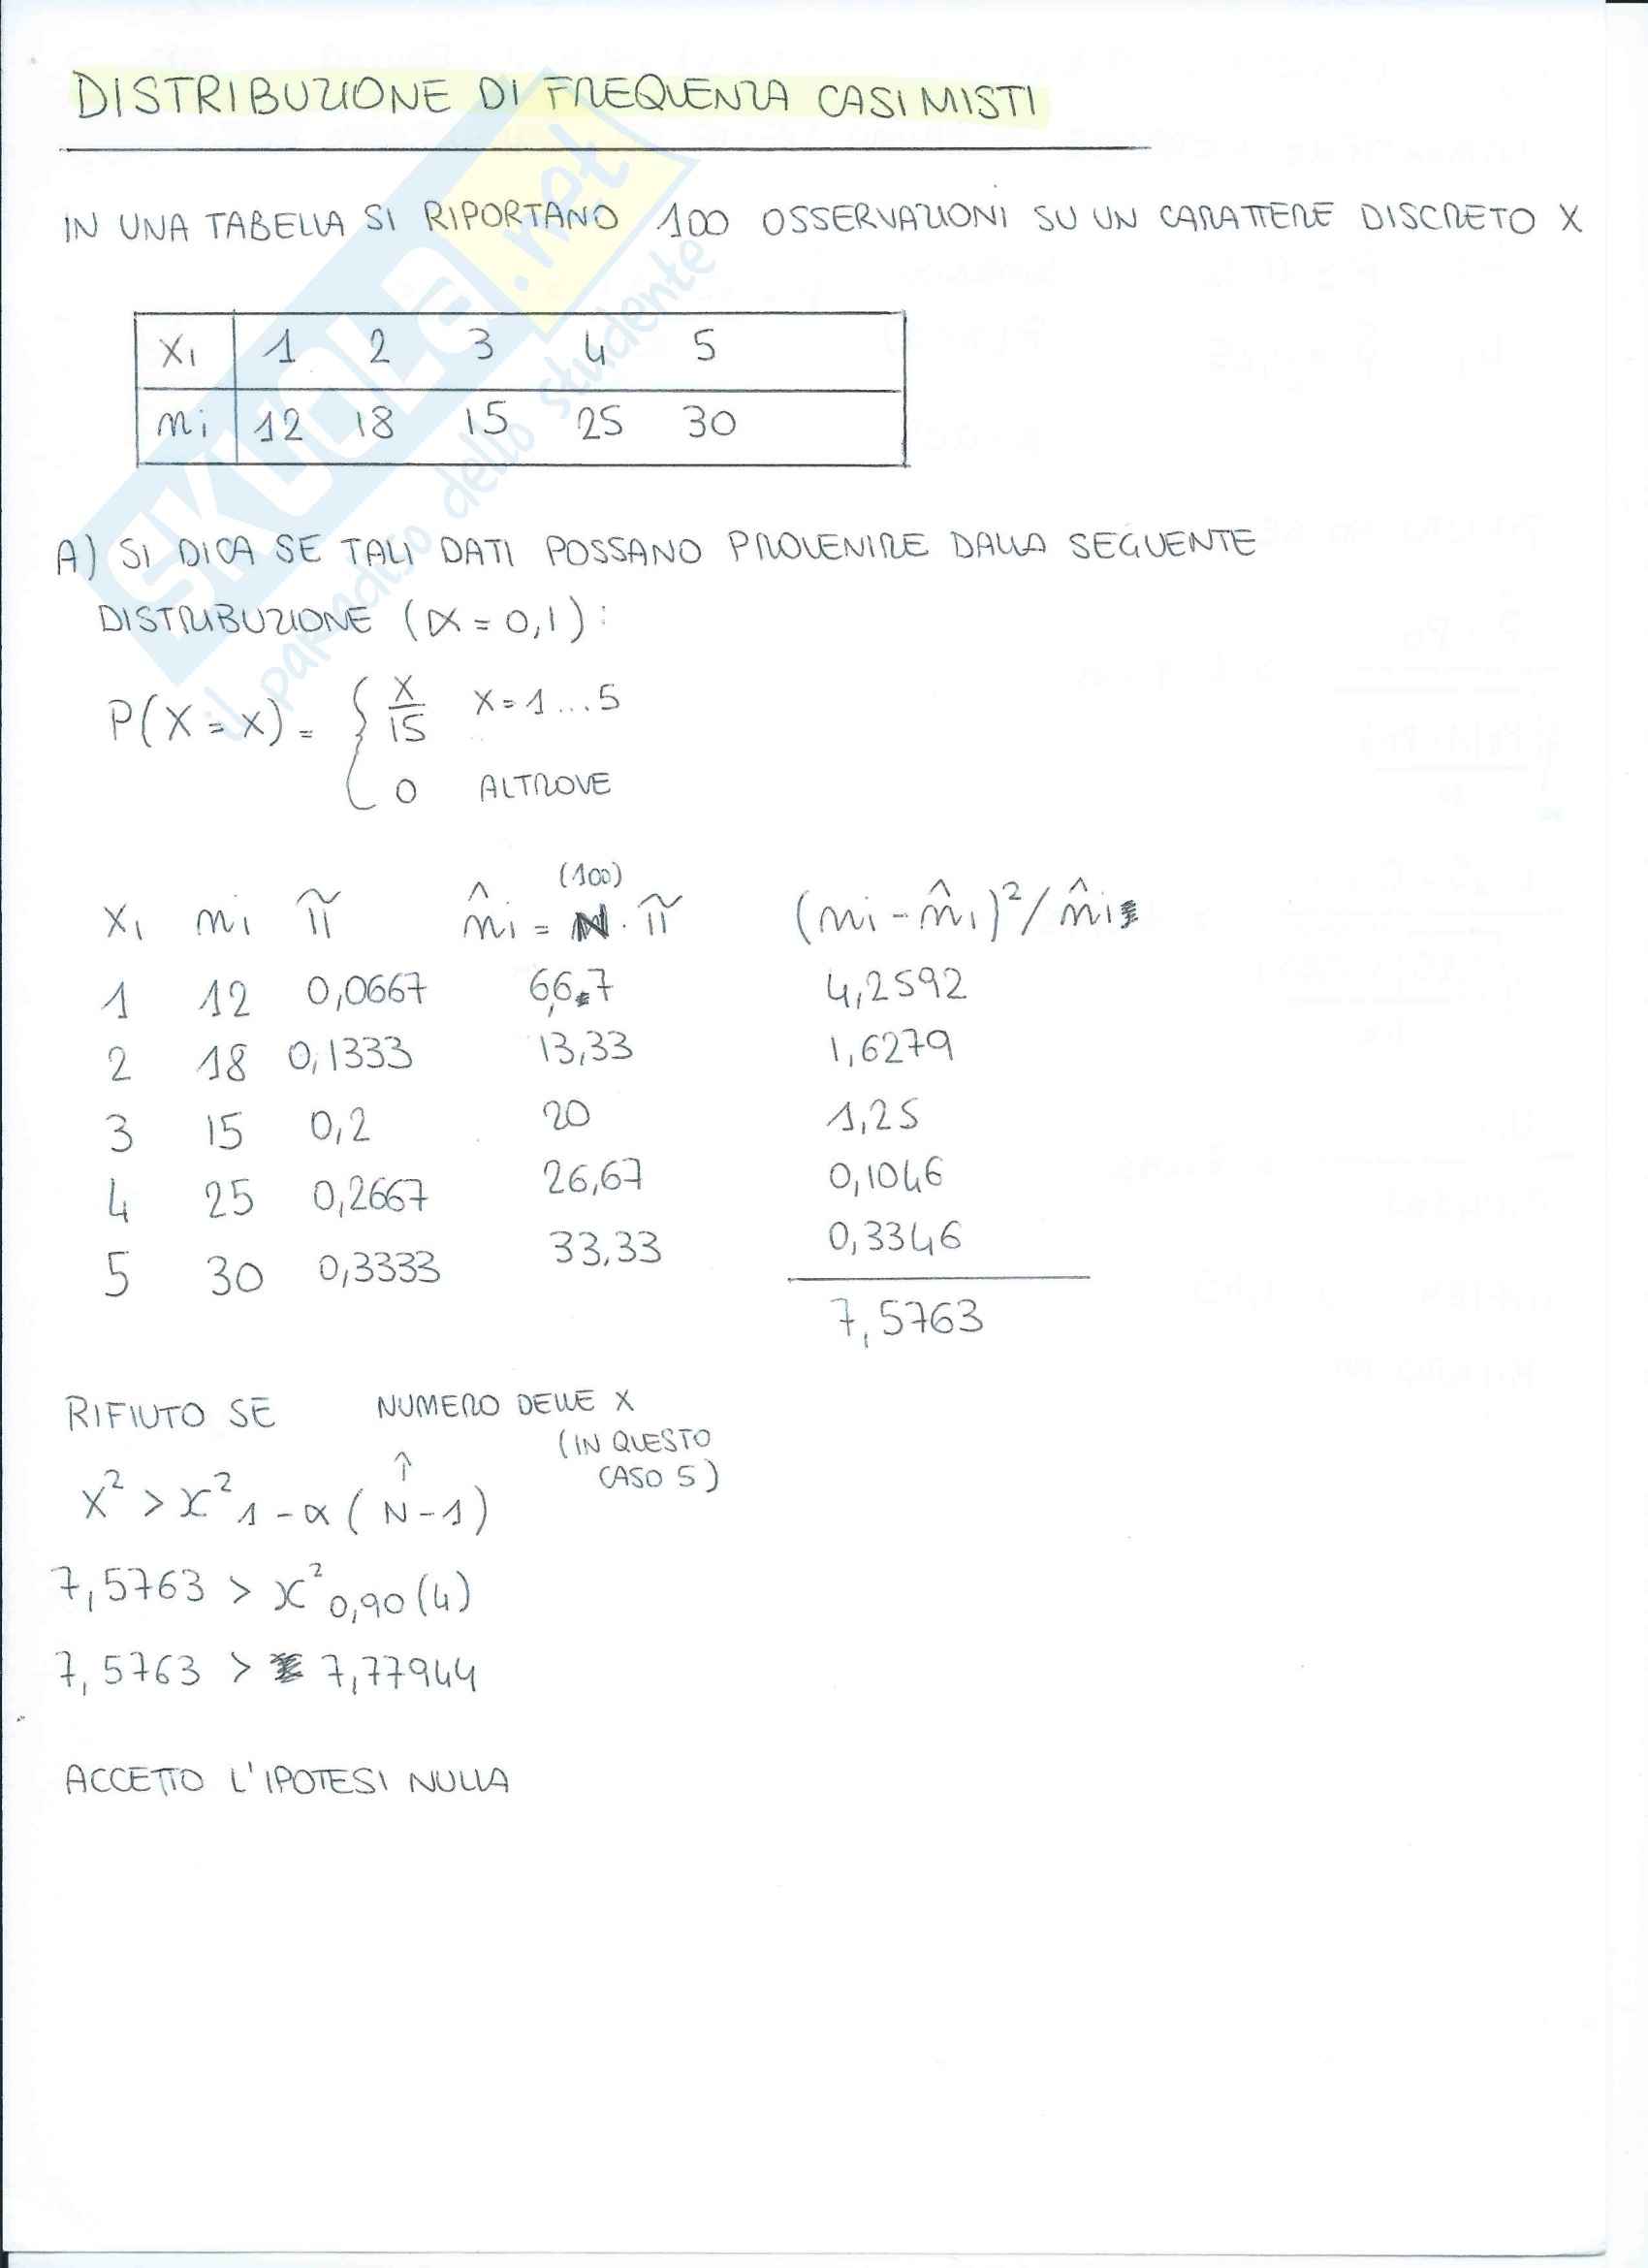 DISTRIBUZIONE DI FREQUENZA CASI MISTI
IN UNA TABELLA SI RIPORTANO 100 OSSERVAZIONI SU UN CARATTERE DISCRETO X
Xi 1 2 3 4 5
ni 12 18 15 25 30
A) SI DICA SE TALI DATI POSSANO PROVENIRE DALLA SEGUENTE
DISTRIBUZIONE (α = 0,1):
P(X = x) = { x/15 x = 1 ... 5
0 ALTROVE
(100)
Xi ni π̃ n̂i = N · π̃ (ni - n̂i)²/n̂i
1 12 0,0667 6,67 4,2592
2 18 0,1333 13,33 1,6279
3 15 0,2 20 1,25
4 25 0,2667 26,67 0,1046
5 30 0,3333 33,33 0,3346
7,5763
RIFIUTO SE NUMERO DELLE X
(IN QUESTO
CASO 5)
↑
X² > X²1-α (N-1)
7,5763 > X²0,90(4)
7,5763 > 7,77944
ACCETTO L'IPOTESI NULLA
SKUOLA.net
il paradiso dello studente